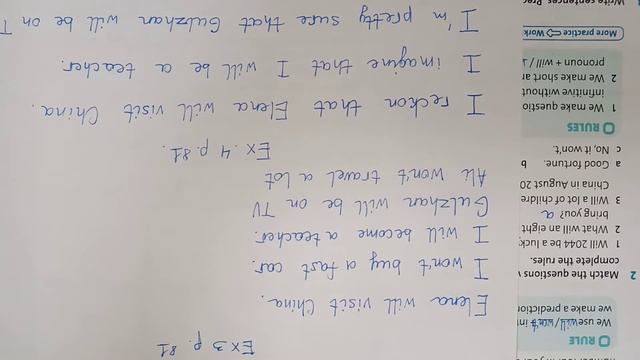 RULE
We use will/won't
we make a prediction
2 Match the questions
complete the rules.
1 Will 2044 be a
2 What will an eight
bring you? a
3 Will a lot of
China in August 20
a Good fortune. b
c No, it won't.
RULES
1 We make
infinitive without
2 We make short
pronoun + will /
More practice ⇨ Work
Write sentences
Ex 3 p. 81
Elena will visit China.
I won't buy a fast car.
I will become a teacher.
Gulzhan will be on TV
Ali won't travel a lot
Ex. 4 p. 81.
I reckon that Elena will visit China.
I imagine that I will be a teacher.
I'm pretty sure that Gulzhan will be on T